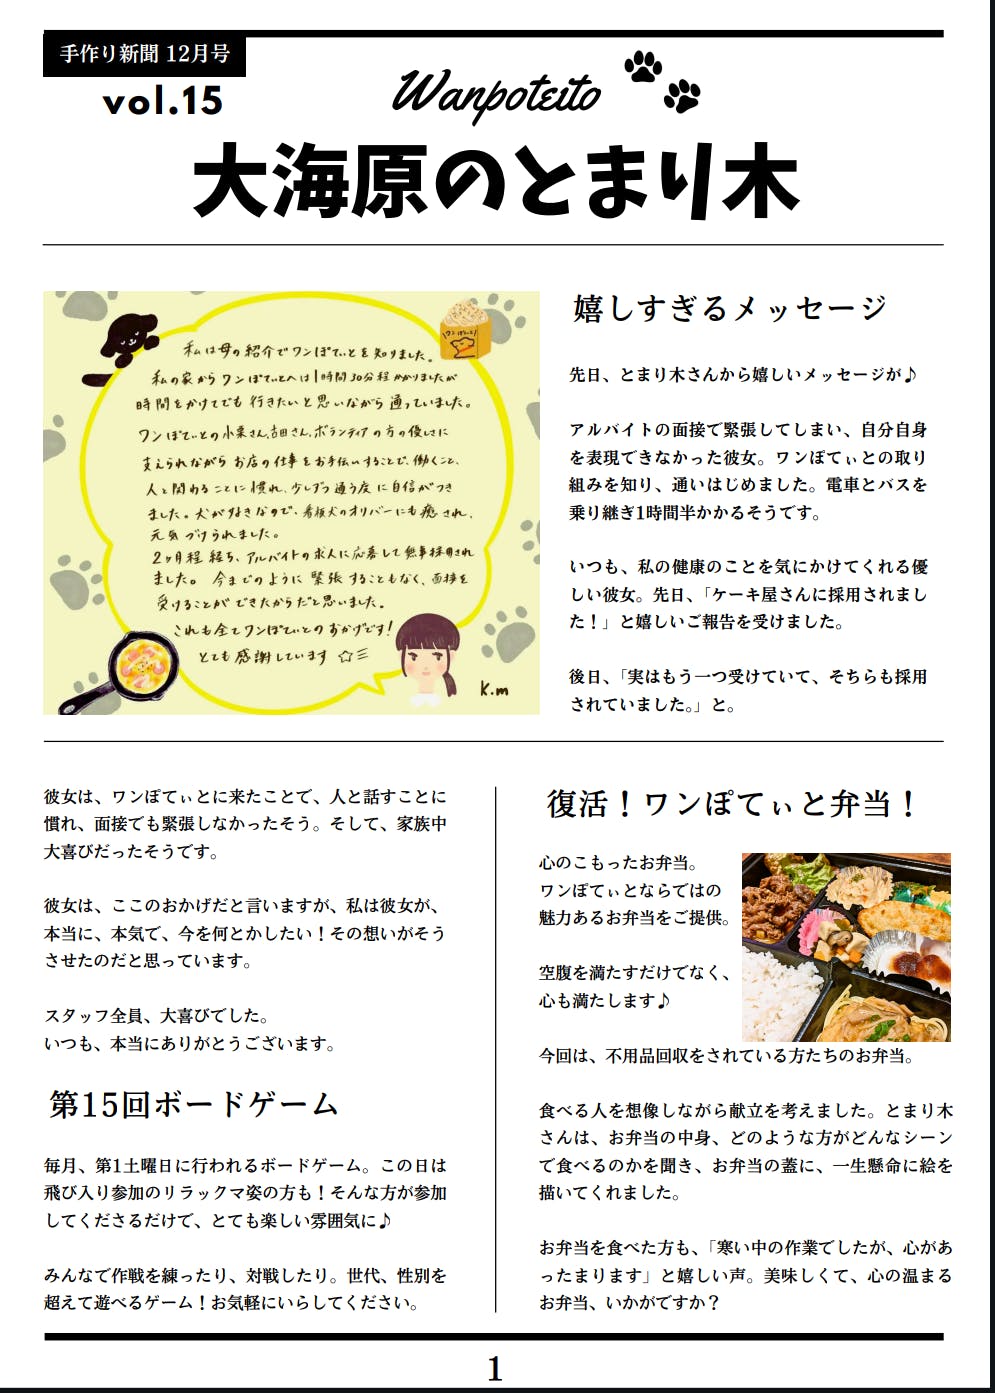 手作り新聞 12月号
vol.15
Wanpoteito
大海原のとまり木
私は母の紹介でワンぽてぃとを知りました。
私の家からワンぽてぃとへは1時間30分程かかりましたが
時間をかけてでも行きたいと思いながら通っていました。
ワンぽてぃとの小栗さん、吉田さん、ボランティアの方の優しさに
支えられながらお店の仕事をお手伝いすることで、働くこと、
人と関わることに慣れ、少しずつ通う度に自信がつき
ました。犬が好きなので、看板犬のオリバーにも癒され、
元気づけられました。
2ヶ月程経ち、アルバイトの求人に応募して無事採用され
ました。今までのように緊張することもなく、面接を
受けることができたからだと思いました。
これも全てワンぽてぃとのおかげです!
とても感謝しています☆彡
K.m
ワンぽてぃと
嬉しすぎるメッセージ
先日、とまり木さんから嬉しいメッセージが♪
アルバイトの面接で緊張してしまい、自分自身
を表現できなかった彼女。ワンぽてぃとの取り
組みを知り、通いはじめました。電車とバスを
乗り継ぎ1時間半かかるそうです。
いつも、私の健康のことを気にかけてくれる優
しい彼女。先日、「ケーキ屋さんに採用されまし
た！」と嬉しいご報告を受けました。
後日、「実はもう一つ受けていて、そちらも採用
されていました。」と。
彼女は、ワンぽてぃとに来たことで、人と話すことに
慣れ、面接でも緊張しなかったそう。そして、家族中
大喜びだったそうです。
彼女は、ここのおかげだと言いますが、私は彼女が、
本当に、本気で、今を何とかしたい！その想いがそう
させたのだと思っています。
スタッフ全員、大喜びでした。
いつも、本当にありがとうございます。
第15回ボードゲーム
毎月、第1土曜日に行われるボードゲーム。この日は
飛び入り参加のリラックマ姿の方も！そんな方が参加
してくださるだけで、とても楽しい雰囲気に♪
みんなで作戦を練ったり、対戦したり。世代、性別を
超えて遊べるゲーム！お気軽にいらしてください。
復活！ワンぽてぃと弁当！
心のこもったお弁当。
ワンぽてぃとならではの
魅力あるお弁当をご提供。
空腹を満たすだけでなく、
心も満たします♪
今回は、不用品回収をされている方たちのお弁当。
食べる人を想像しながら献立を考えました。とまり木
さんは、お弁当の中身、どのような方がどんなシーン
で食べるのかを聞き、お弁当の蓋に、一生懸命に絵を
描いてくれました。
お弁当を食べた方も、「寒い中の作業でしたが、心があ
ったまります」と嬉しい声。美味しくて、心の温まる
お弁当、いかがですか？
1